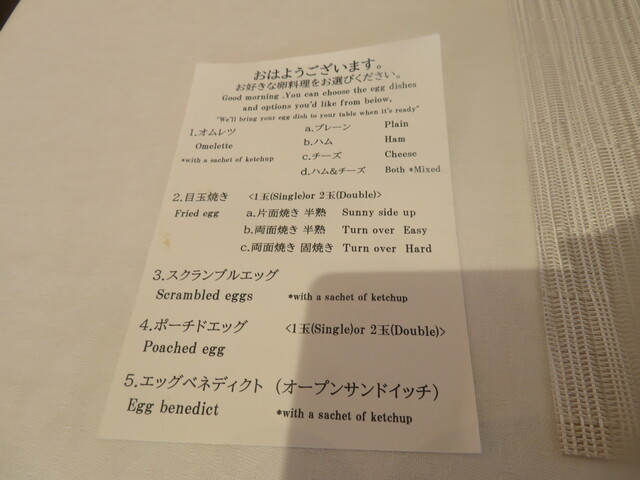 おはようございます。
お好きな卵料理をお選びください。
Good morning .You can choose the egg dishes
and options you'd like from below,
"We'll bring your egg dish to your table when it's ready"
1.オムレツ a.プレーン Plain
Omelette b.ハム Ham
*with a sachet of ketchup c.チーズ Cheese
d.ハム&チーズ Both *Mixed
2.目玉焼き <1玉(Single)or 2玉(Double)>
Fried egg a.片面焼き 半熟 Sunny side up
b.両面焼き 半熟 Turn over Easy
c.両面焼き 固焼き Turn over Hard
3.スクランブルエッグ
Scrambled eggs *with a sachet of ketchup
4.ポーチドエッグ <1玉(Single)or 2玉(Double)>
Poached egg
5.エッグベネディクト (オープンサンドイッチ)
Egg benedict *with a sachet of ketchup